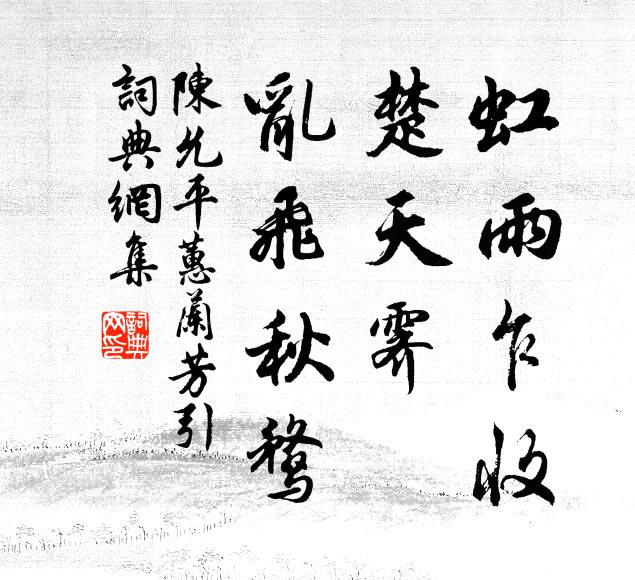 虹雨乍收
楚天霽
亂飛秋鶩
陳允平蕙蘭芳引
詞典網集
詞典
网印